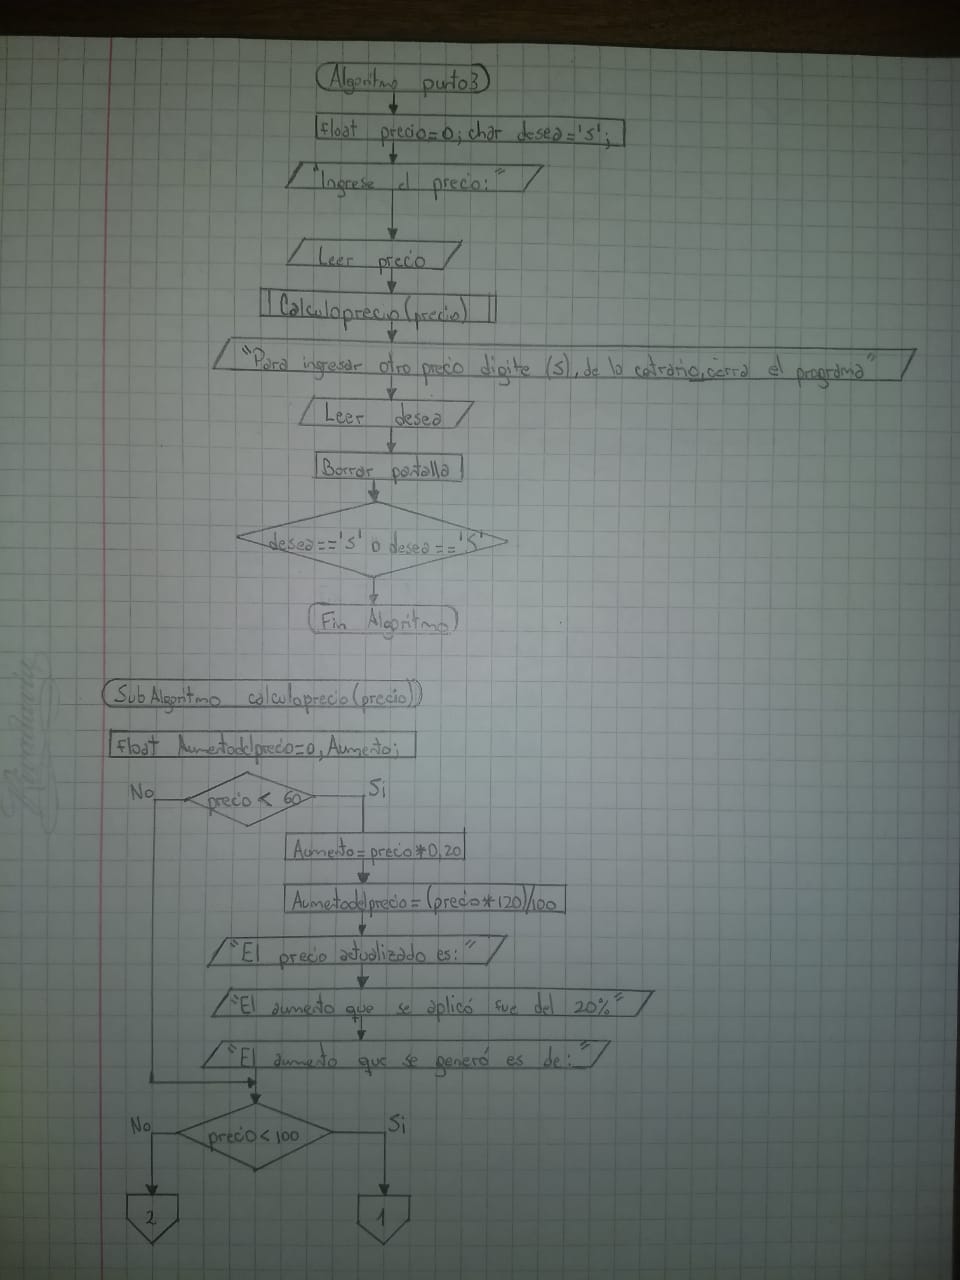 Algoritmo punto3
float precio=0; char desea='s';
"Ingrese el precio:"
Leer precio
Calculoprecio(precio)
"Para ingresar otro precio digite (s), de lo cotrario, cerra el programa"
Leer desea
Borrar pantalla
desea=='s' o desea=='S'
Fin Algoritmo
SubAlgoritmo calculoprecio(precio)
float Aumentodelprecio=0, Aumento;
No
precio < 60
Si
Aumento=precio*0,20
Aumetodelprecio=(precio*120)/100
"El precio actualizado es:"
"El aumento que se aplicó fue del 20%"
"El aumento que se generó es de:"
No
precio<100
Si
2
1